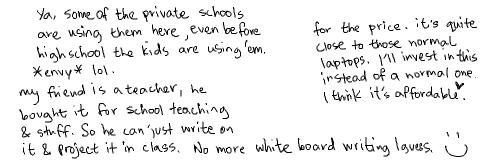 Ya, some of the private schools
are using them here, even before
highschool the kids are using 'em.
*envy* lol.
my friend is a teacher, he
bought it for school teaching
& stuff. So he can just write on
it & project it in class. No more white board writing I guess. :)
for the price. it's quite
close to those normal
laptops. I'll invest in this
instead of a normal one.
I think it's affordable.